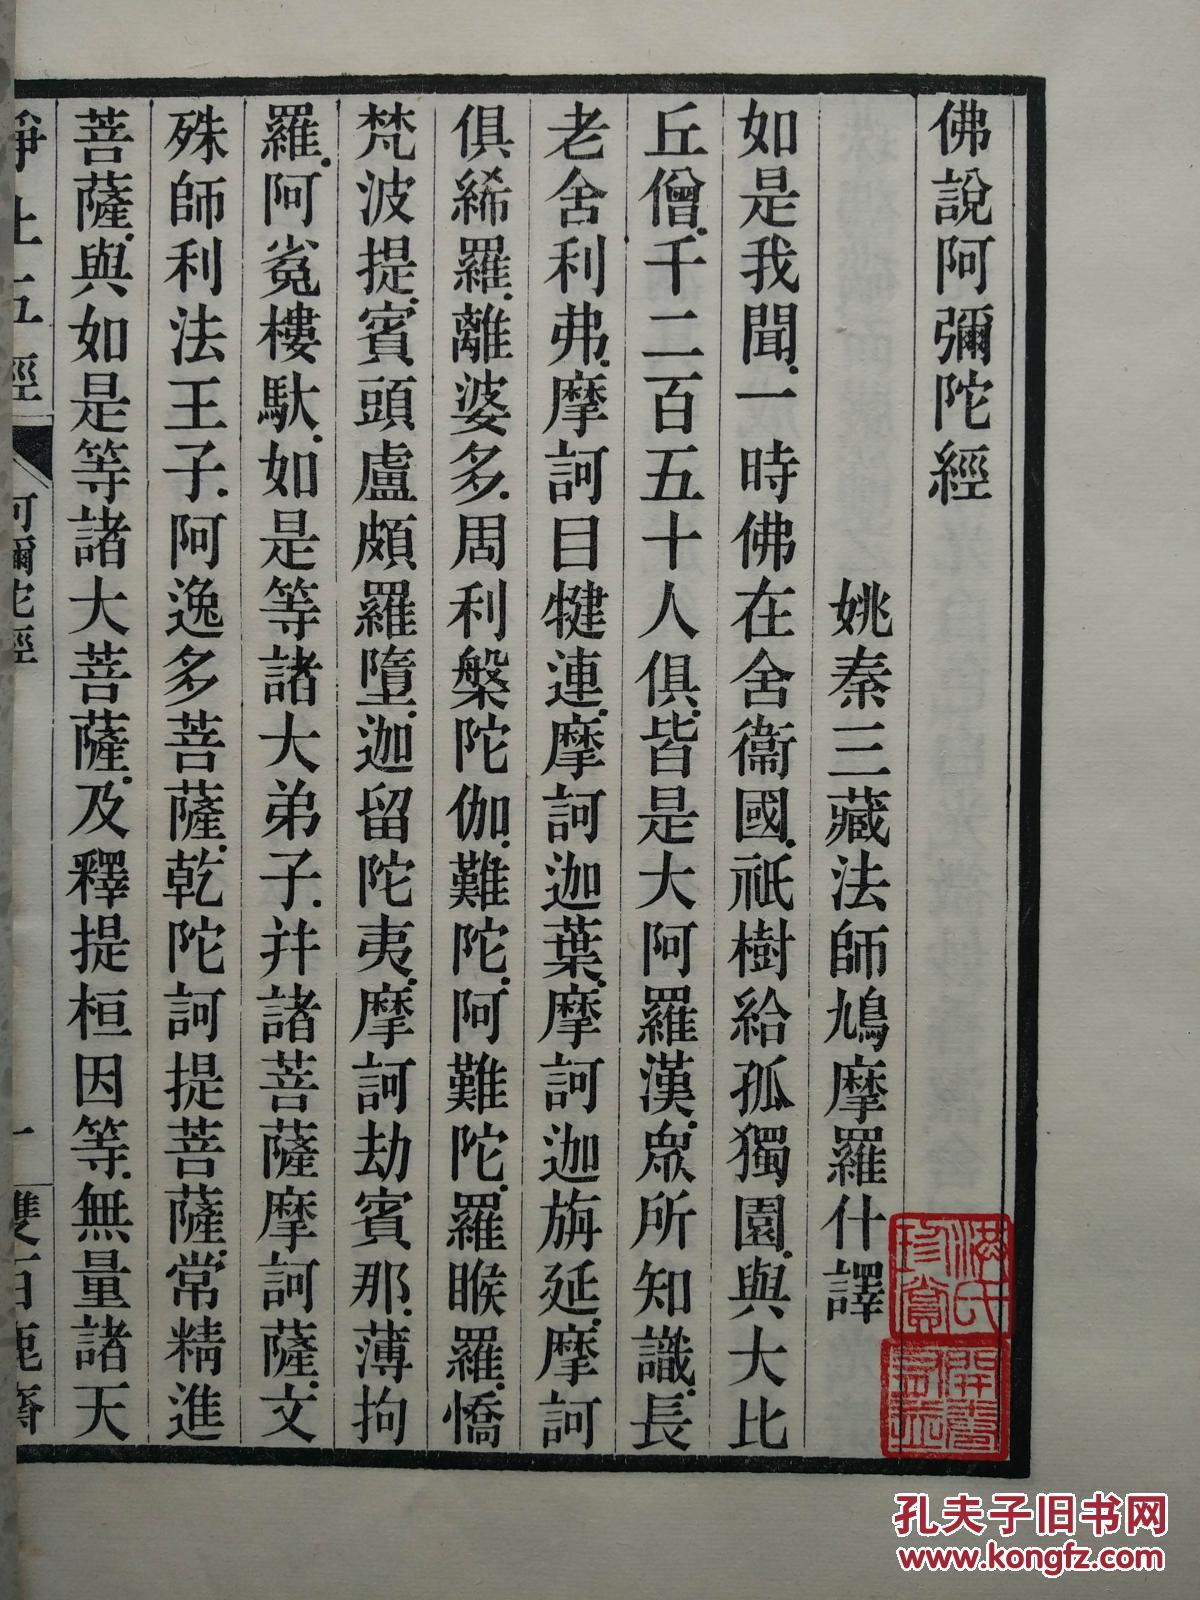 佛說阿彌陀經
姚秦三藏法師鳩摩羅什譯
如是我聞.一時佛在舍衞國.祇樹給孤獨園.與大比
丘僧.千二百五十人俱.皆是大阿羅漢.眾所知識.長
老舍利弗.摩訶目犍連.摩訶迦葉.摩訶迦旃延.摩訶
俱絺羅.離婆多.周利槃陀伽.難陀.阿難陀.羅睺羅.憍
梵波提.賓頭盧頗羅墮.迦留陀夷.摩訶劫賓那.薄拘
羅.阿㝹樓馱.如是等諸大弟子.幷諸菩薩摩訶薩.文
殊師利法王子.阿逸多菩薩.乾陀訶提菩薩.常精進
菩薩.與如是等諸大菩薩.及釋提桓因等.無量諸天
淨土五經
阿彌陀經
一
雙百鹿齋
洪氏珍賞
開卷有益
孔夫子旧书网
www.kongfz.com